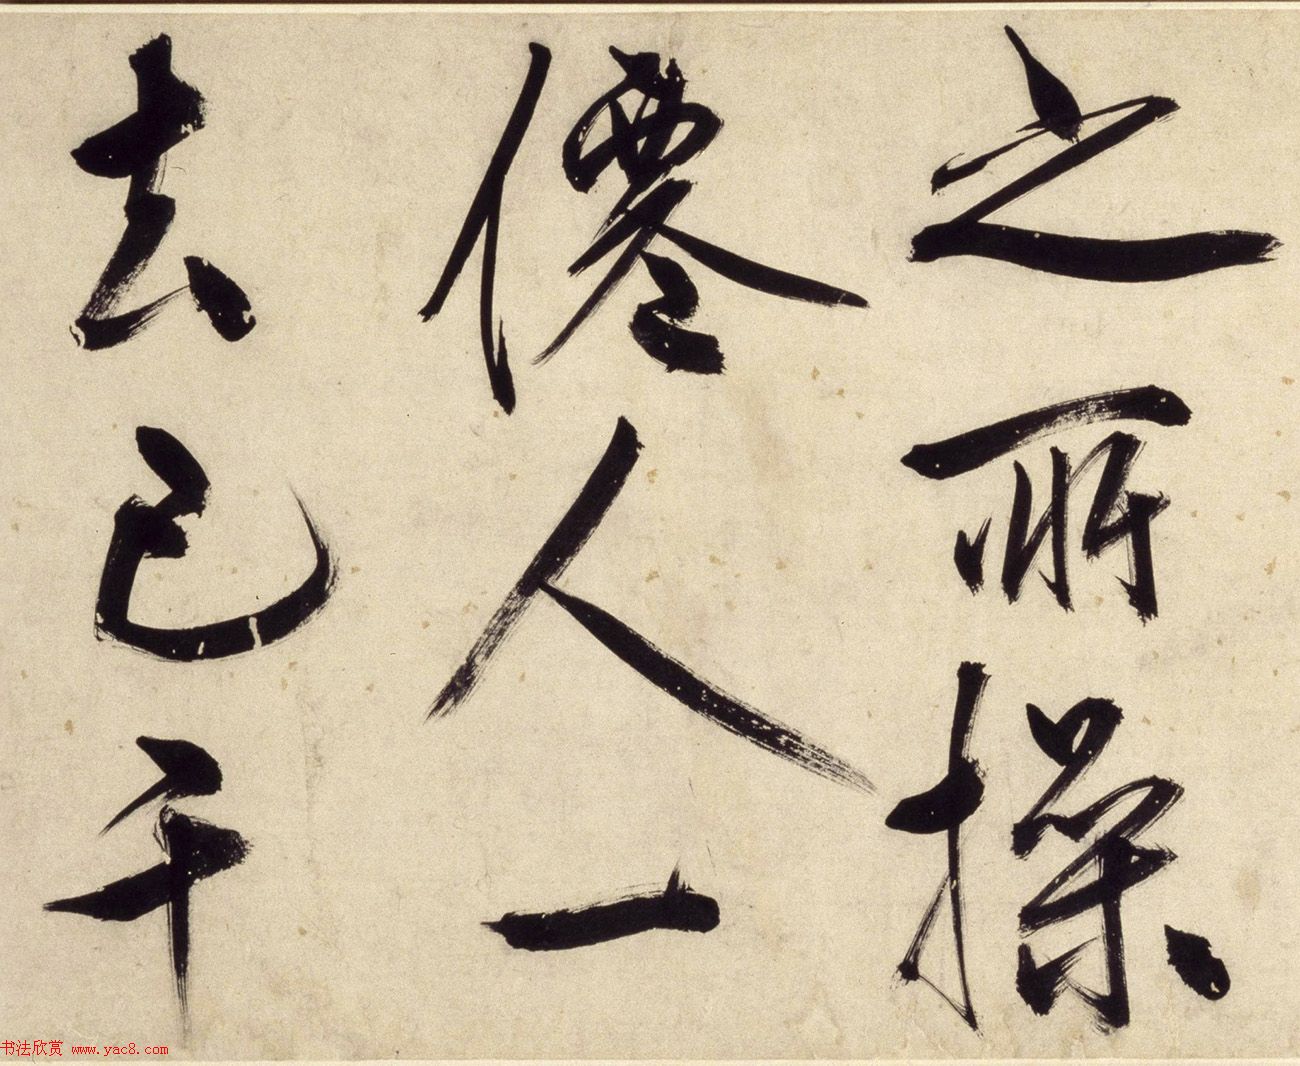 之所操
僊人一
去已千
书法欣赏 www.yac8.com